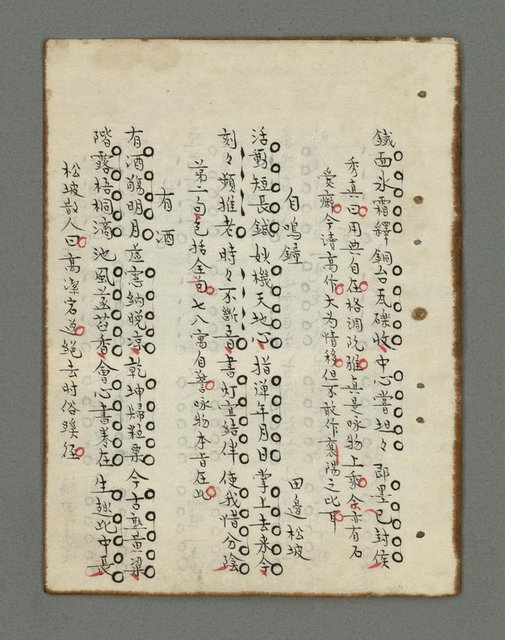 鐵面冰霜釋銅台瓦礫收中心嘗坦々即墨已封侯
秀真曰用典自在格調既雅真是咏物上乘余亦有石
愛癖今讀高作大為情移但不敢作襄陽之比耳
自鳴鐘
田邊松坡
活動短長鍼妙機天地心指揮年月日掌上去來今
刻々頻推老時々不斷音書灯宜結伴使我惜分陰
第二句包括全首七八寓自警咏物本旨在此
有酒
有酒酹明月簾窓納晚涼乾坤歸粒粟今古直黃粱
階露梧桐滴池風菡萏香會心書卷在生趣此中長
松坡散人曰高潔宕逸絕去時俗蹊徑